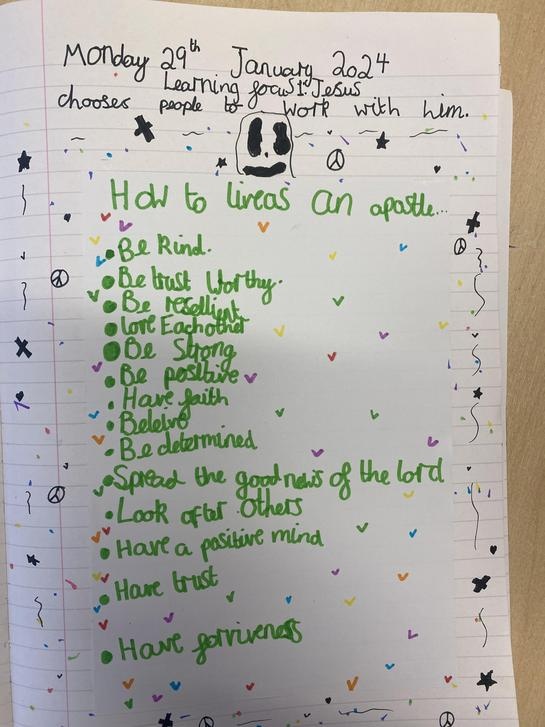 Monday 29th January 2024
Learning focus 1: Jesus
chooses people to work with him.
How to liveas an apostle...
Be Kind.
Be trust worthy.
Be resellient
love Eachother
Be Strong
Be positive
Have faith
Beleive
Be determined
Spread the good news of the lord
Look after others
Have a positive mind
Have trust
Have forriveness